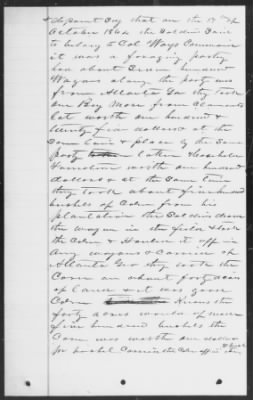 deponent say that on the 18th of
October 1864 the Soldiers Came
to belong to Col Ways Command
it was a foraging party
Wagons along the party was
from Atlanta Ga they took
one Bay Mare from Claimants
lot worth one hundred &
twenty five dollars & at the
Same time & place by the Same
party
worth one hundred
dollars & at the Same time
they took about five hundred
bushels of Corn from his
plantation the Soldiers drove
the wagon in the field & took
the Corn & Hauled it off in
Army wagons & Carried to
Atlanta Ga they took the
Corn on about forty acres
of land & it was good
Corn Knows the
forty acres would of made
five hundred bushels the
Corn was worth one dollar
per bushel Carried the Corn off in